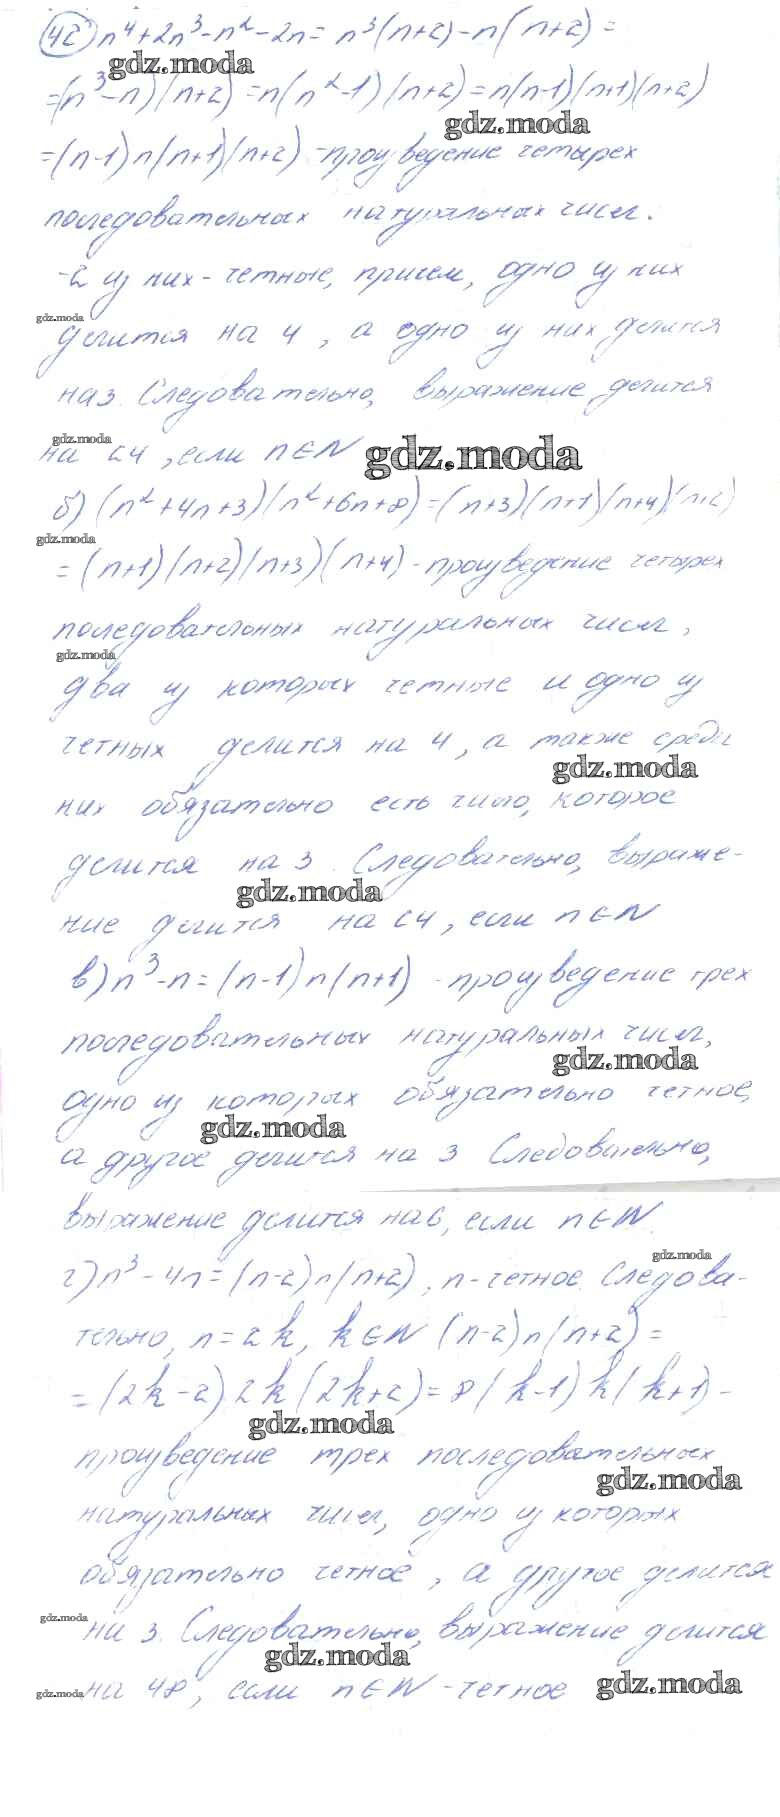 42) n⁴+2n³-n²-2n= n³(n+2)-n(n+2)=
gdz.moda
=(n³-n)(n+2)=n(n²-1)(n+2)=n(n-1)(n+1)(n+2)
gdz.moda
=(n-1)n(n+1)(n+2)-произведение четырех
последовательных натуральных чисел.
-2 из них-четные, причем, одно из них
gdz.moda
делится на 4, а одно из них делится
на 3. Следовательно, выражение делится
gdz.moda
на 24, если n∈N
gdz.moda
б) (n²+4n+3)(n²+6n+8)=(n+3)(n+1)(n+4)(n+2)
gdz.moda
=(n+1)(n+2)(n+3)(n+4)-произведение четырех
последовательных натуральных чисел,
gdz.moda
два из которых четные и одно из
четных делится на 4, а также среди
gdz.moda
них обязательно есть число, которое
делится на 3. Следовательно, выраже-
gdz.moda
ние делится на 24, если n∈N
в) n³-n=(n-1)n(n+1) -произведение трех
последовательных натуральных чисел,
gdz.moda
одно из которых обязательно четное,
gdz.moda
а другое делится на 3 Следовательно,
выражение делится на 6, если n∈N.
gdz.moda
г) n³-4n=(n-2)n(n+2), n-четное. Следова-
тельно, n=2k, k∈N (n-2)n(n+2)=
=(2k-2)2k(2k+2)=8(k-1)k(k+1)-
gdz.moda
произведение трех последовательных
gdz.moda
натуральных чисел, одно из которых
обязательно четное, а другое делится
gdz.moda
на 3. Следовательно, выражение делится
gdz.moda
gdz.moda
на 48, если n∈N -четное
gdz.moda